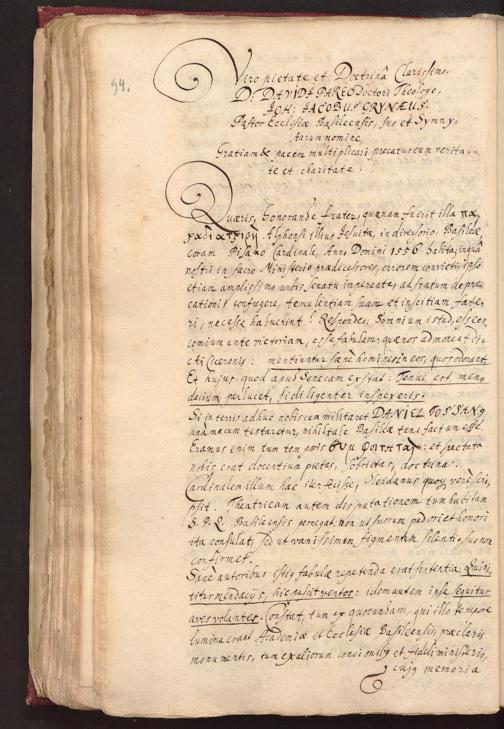 94.
Viro pietate et Doctrinâ Clarissimo,
D: DAVIDI PAREO Doctori Theologo,
IOH: IACOBUS GRYNÆUS.
Pastor Ecclesiæ Basileensis, suo et Symmy-
starum nomine
Gratiam & pacem multiplicari precatur cum verita-
te et charitate.
Quæris, honorande frater, quænam fuerit illa πα
Alphonsi illius Jesuitæ, in diversorio, Basileæ
coram Pisano Cardinale, Anno Domini 1556. habita, in qua
nostri in sacro Ministerio prædecessores, errorem convicti, ipso
etiam amplissimo urbis senatu imperante, ad statum depre
cationis confugere, temulentiam suam et inscitiam fate-
ri, necesse habuerint? Respondeo, Somnium istud, esse en-
comium ante victoriam, esse fabulam: quæ nos admoneat di-
cti Ciceronis: mentiuntur sæpe homines in eos, quos oderant
Et hujus, quod apud Senecam exstat: Tenue est men-
dacium perlucet, si diligenter inspexeris.
Si in terris adhuc nobiscum militaret DANIEL TOSSANUS
unà mecum testaretur, nihil tale Basileæ tunc factum esse.
Eramus enim tum temporis : et spectata
nobis erat docentium pietas, sobrietas, doctrina.
Cardinalem illum hac iter fecisse, Sleidanus quoque verè scri-
psit. Theatricam autem disputationem tum habitam
S. P. Q. Basileensis pernegat: non ut suorum pudori et honori
ita consulat, sed ut vanissimum figmentum silentio suo non
confirmet.
Sane autoribus istius fabulæ repetenda erat sententia: Qui ni-
titur mendaciis, hic pascit ventos: idem autem ipse sequitur
aves volantes. Constat, tum ex quorundam, qui illo tempore
lumina erant Academiæ et Ecclesiæ Basileensis, præclaris
monumentis, tum ex aliorum concionibus et fideli ministerio,
cujus memoria